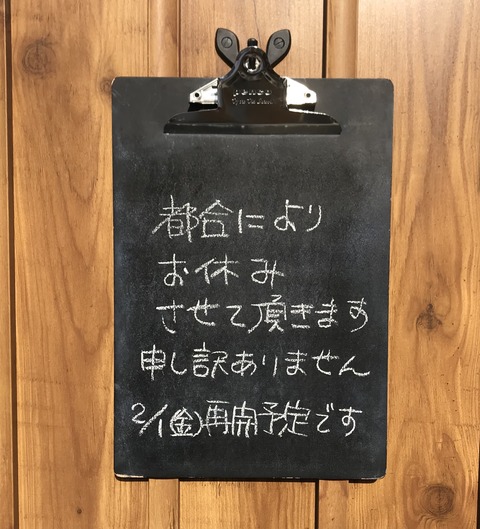 penco
都合により
お休み
させて頂きます
申し訳ありません
2/1(金)再開予定です